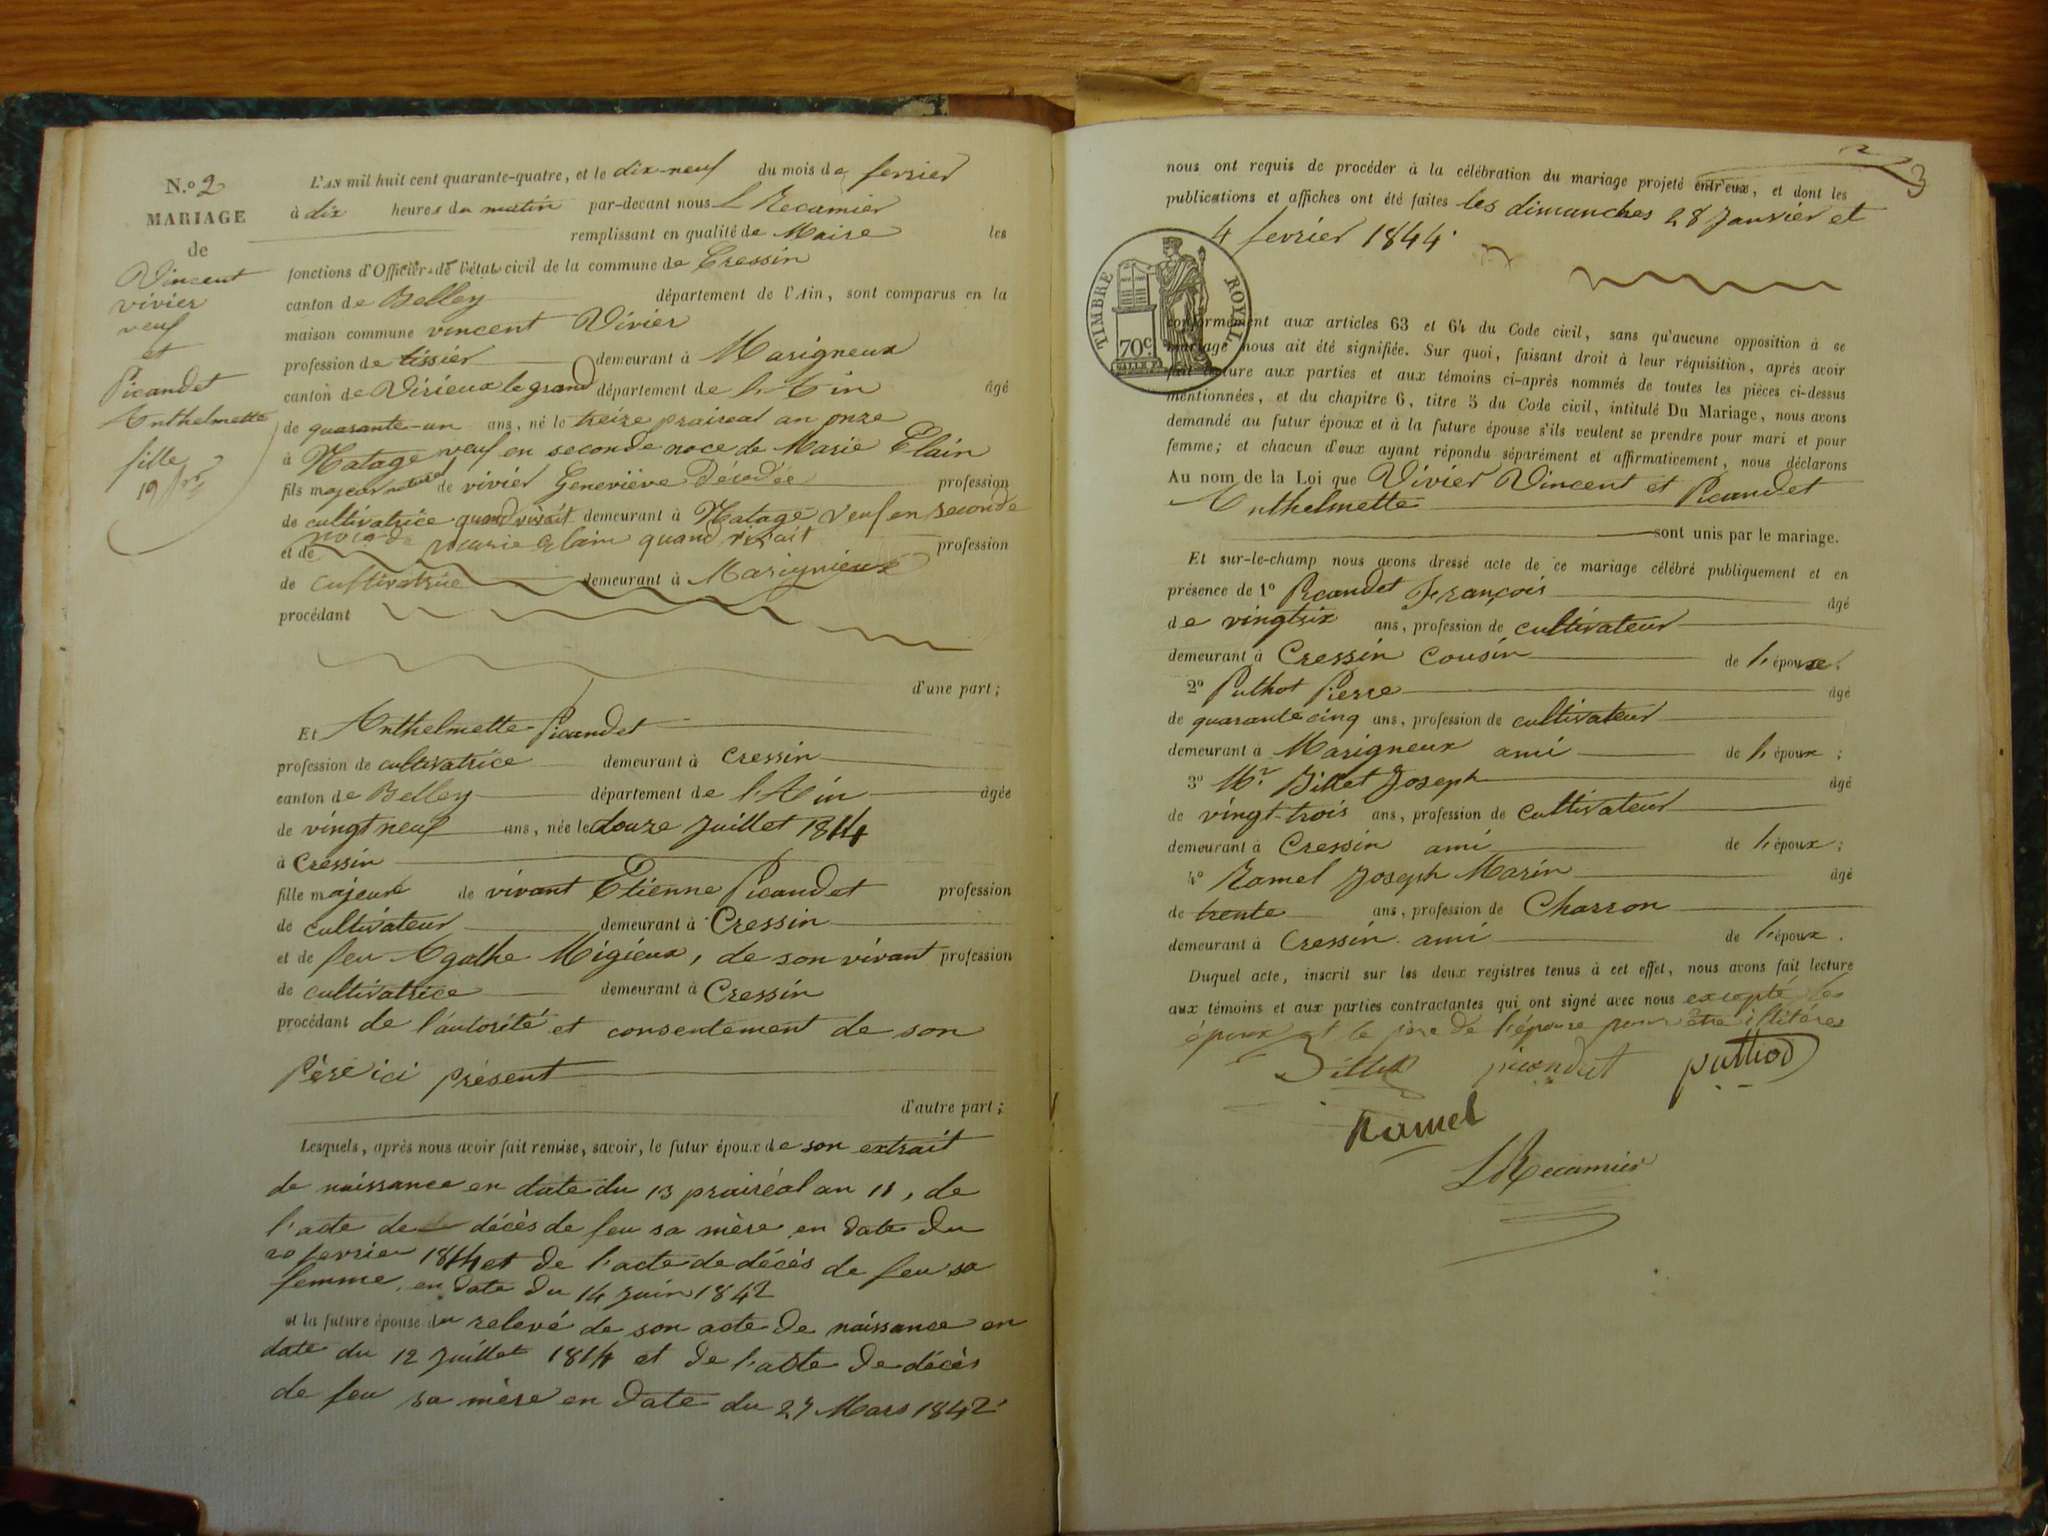 N.º 2
MARIAGE
de
Vincent
vivier
veuf
et
Picandet
Anthelmette
fille
19
L'AN mil huit cent quarante-quatre, et le dix-neuf du mois de fevrier
à dix heures du matin par-devant nous L Recamier
remplissant en qualité de Maire les
fonctions d'Officier de l'état civil de la commune de Cressin
canton de Belley département de l'Ain, sont comparus en la
maison commune vincent Vivier
profession de tissier demeurant à Marigneux
canton de Virieux le grand département de l'Ain âgé
de quarante-un ans, né le treize praireal an onze
à Natage veuf en seconde noce de Marie Elain
fils majeur naturel de vivier Geneviève Décédée profession
de cultivatrice quand vivait demeurant à Natage veuf en seconde
et de noce de Marie Elain quand vivait profession
de cultivatrice demeurant à Marignieux
procédant
d'une part;
Et Anthelmette Picandet
profession de cultivatrice demeurant à Cressin
canton de Belley département de l'Ain âgée
de vingt neuf ans, née le douze Juillet 1814
à Cressin
fille majeure de vivant Etienne Picandet profession
de cultivateur demeurant à Cressin
et de feu Agathe Migieux, de son vivant profession
de cultivatrice demeurant à Cressin
procédant de l'autorité et consentement de son
Père ici présent
d'autre part;
Lesquels, après nous avoir fait remise, savoir, le futur époux de son extrait
de naissance en date du 13 prairéal an 11, de
l'acte de décès de feu sa mère en date du
20 fevrier 1814 et de l'acte de décès de feu sa
femme, en date du 14 Juin 1842
et la future épouse du relevé de son acte de naissance en
date du 12 Juillet 1814 et de l'acte de décès
de feu sa mère en date du 27 Mars 1842
2
3
nous ont requis de procéder à la célébration du mariage projeté entr'eux, et dont les
publications et affiches ont été faites les dimanches 28 Janvier et
4 fevrier 1844.
TIMBRE ROYAL
70c
conformément aux articles 63 et 64 du Code civil, sans qu'aucune opposition à ce
mariage nous ait été signifiée. Sur quoi, faisant droit à leur réquisition, après avoir
fait lecture aux parties et aux témoins ci-après nommés de toutes les pièces ci-dessus
mentionnées, et du chapitre 6, titre 5 du Code civil, intitulé Du Mariage, nous avons
demandé au futur époux et à la future épouse s'ils veulent se prendre pour mari et pour
femme; et chacun d'eux ayant répondu séparément et affirmativement, nous déclarons
Au nom de la Loi que Vivier Vincent et Picandet
Anthelmette
sont unis par le mariage.
Et sur-le-champ nous avons dressé acte de ce mariage célébré publiquement et en
présence de 1º Picandet François âgé
de vingtsix ans, profession de cultivateur
demeurant à Cressin cousin de l'épouse.
2º Puthot Pierre âgé
de quarante cinq ans, profession de cultivateur
demeurant à Marigneux ami de l'époux;
3º Mr. Billet Joseph âgé
de vingt-trois ans, profession de cultivateur
demeurant à Cressin ami de l'époux;
4º Ramel Joseph Marin âgé
de trente ans, profession de Charron
demeurant à Cressin ami de l'époux.
Duquel acte, inscrit sur les deux registres tenus à cet effet, nous avons fait lecture
aux témoins et aux parties contractantes qui ont signé avec nous excepté les
époux et le père de l'épouse pour être illitérés
Billet picandet puthod
Ramel
LRecamier